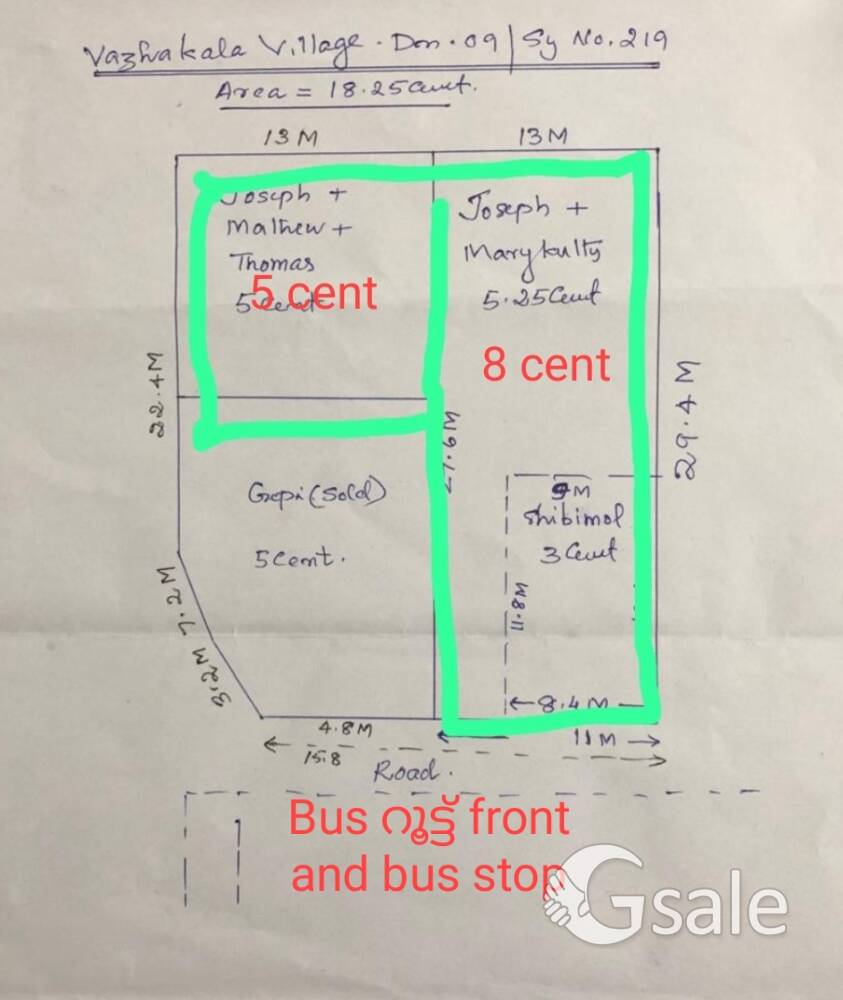 Vazhakala Village. Den. 09 | Sy No. 219
Area = 18.25 Cent.
13 M
13 M
Joseph +
Mathew +
Thomas
5 Cent
5 cent
Joseph +
Marykutty
5.25 Cent
8 cent
22.4 M
29.4 M
27.6 M
Gopi (Sold)
5 Cent.
9 M
Shibimol
3 Cent
11.8 M
7.2 M
3.2 M
8.4 M
4.8 M
11 M
15.8
Road.
Bus റൂട്ട് front
and bus stop
Gsale